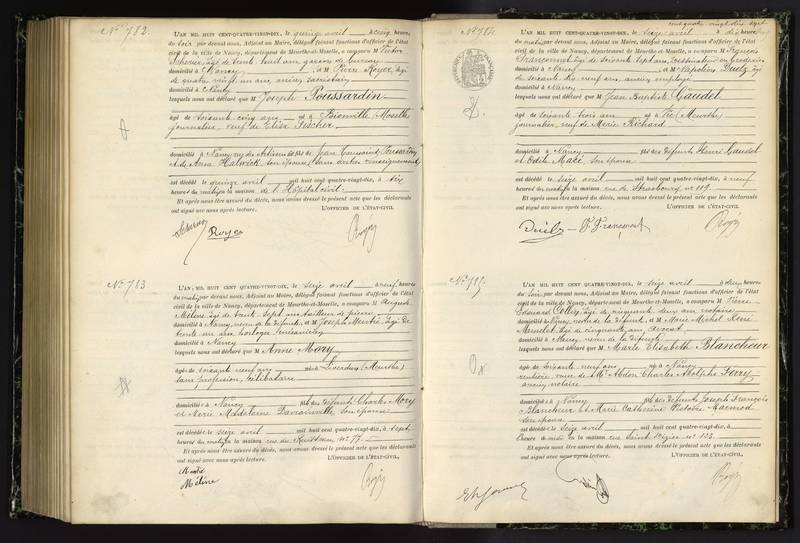 No 782.
L'AN MIL HUIT CENT QUATRE-VINGT-DIX, le quinze avril à cinq heures
du soir par devant nous, Adjoint au Maire, délégué faisant fonctions d'officier de l'état
civil de la ville de Nancy, département de Meurthe-et-Moselle, a comparu M Victor
âgé de trente huit ans garçon de bureau
domicilié à Nancy et M Pierre Royer, âgé
de quatre vingt un ans, ancien sacristain
domicilié à Nancy
lesquels nous ont déclaré que M Joseph Poussardin
âgé de soixante cinq ans né à Moselle
journalier, veuf de Elisa Fischer
domicilié à Nancy fils de Jean Poussardin
et de Anne son épouse, sans autre renseignement
est décédé le quinze avril mil huit cent quatre-vingt-dix, à six
heures du matin en la maison de l'Hôpital civil.
Et après nous être assuré du décès, nous avons dressé le présent acte que les déclarants
ont signé avec nous après lecture. L'OFFICIER DE L'ÉTAT-CIVIL
Royer
No 783
L'AN MIL HUIT CENT QUATRE-VINGT-DIX, le seize avril à neuf heures
du matin par devant nous, Adjoint au Maire, délégué faisant fonctions d'officier de l'état
civil de la ville de Nancy, département de Meurthe-et-Moselle, a comparu M Auguste
Méline âgé de trente sept ans tailleur de pierres
domicilié à Nancy, neveu de la défunte, et M Joseph âgé de
trente un ans horloger mécanicien
domicilié à Nancy
lesquels nous ont déclaré que M Anne Mory
âgée de soixante neuf ans née à Liverdun (Meurthe)
sans profession, célibataire
domiciliée à Nancy fille des défunts Charles Mory
et Marie Madeleine son épouse
est décédée le seize avril mil huit cent quatre-vingt-dix, à sept
heures du matin en la maison rue du Ruisseau no 77
Et après nous être assuré du décès, nous avons dressé le présent acte que les déclarants
ont signé avec nous après lecture. L'OFFICIER DE L'ÉTAT-CIVIL,
Méline
cent quatre vingt dix sept
No 784.
L'AN MIL HUIT CENT QUATRE-VINGT-DIX, le seize avril à dix heures
du matin par devant nous, Adjoint au Maire, délégué faisant fonctions d'officier de l'état
civil de la ville de Nancy, département de Meurthe-et-Moselle, a comparu M François
Françonnet âgé de soixante sept ans, dessinateur en broderies
domicilié à Nancy et M Napoléon âgé
de soixante neuf ans, ancien employé
domicilié à Nancy
lesquels nous ont déclaré que M Jean Baptiste Gaudel
âgé de soixante trois ans né à (Meurthe)
journalier, veuf de Marie Richard
domicilié à Nancy fils des défunts Henri Gaudel
et Odile Macé son épouse
est décédé le seize avril mil huit cent quatre-vingt-dix, à une
heure du matin en la maison rue de Strasbourg no 119
Et après nous être assuré du décès, nous avons dressé le présent acte que les déclarants
ont signé avec nous après lecture. L'OFFICIER DE L'ÉTAT-CIVIL
F. Françonnet
No 785.
L'AN MIL HUIT CENT QUATRE-VINGT-DIX, le seize avril à deux heures
du soir, par devant nous, Adjoint au Maire, délégué faisant fonctions d'officier de l'état
civil de la ville de Nancy, département de Meurthe-et-Moselle, a comparu M Pierre
Edouard âgé de cinquante deux ans notaire
domicilié à Nancy de la défunte, et M Marie Michel René
âgé de cinquante ans, avocat
domicilié à Nancy de la défunte
lesquels nous ont déclaré que M Marie Elisabeth Blancheur
âgée de soixante neuf ans née à Nancy
rentière, veuve de Mr Abdon Charles Adolphe Ferry
ancien notaire
domiciliée à Nancy fille des défunts Joseph François
Blancheur et Marie Catherine Victoire
son épouse
est décédée le seize avril mil huit cent quatre-vingt-dix, à
heure en la maison rue Saint Dizier no 123.
Et après nous être assuré du décès, nous avons dressé le présent acte que les déclarants
ont signé avec nous après lecture. L'OFFICIER DE L'ÉTAT-CIVIL,